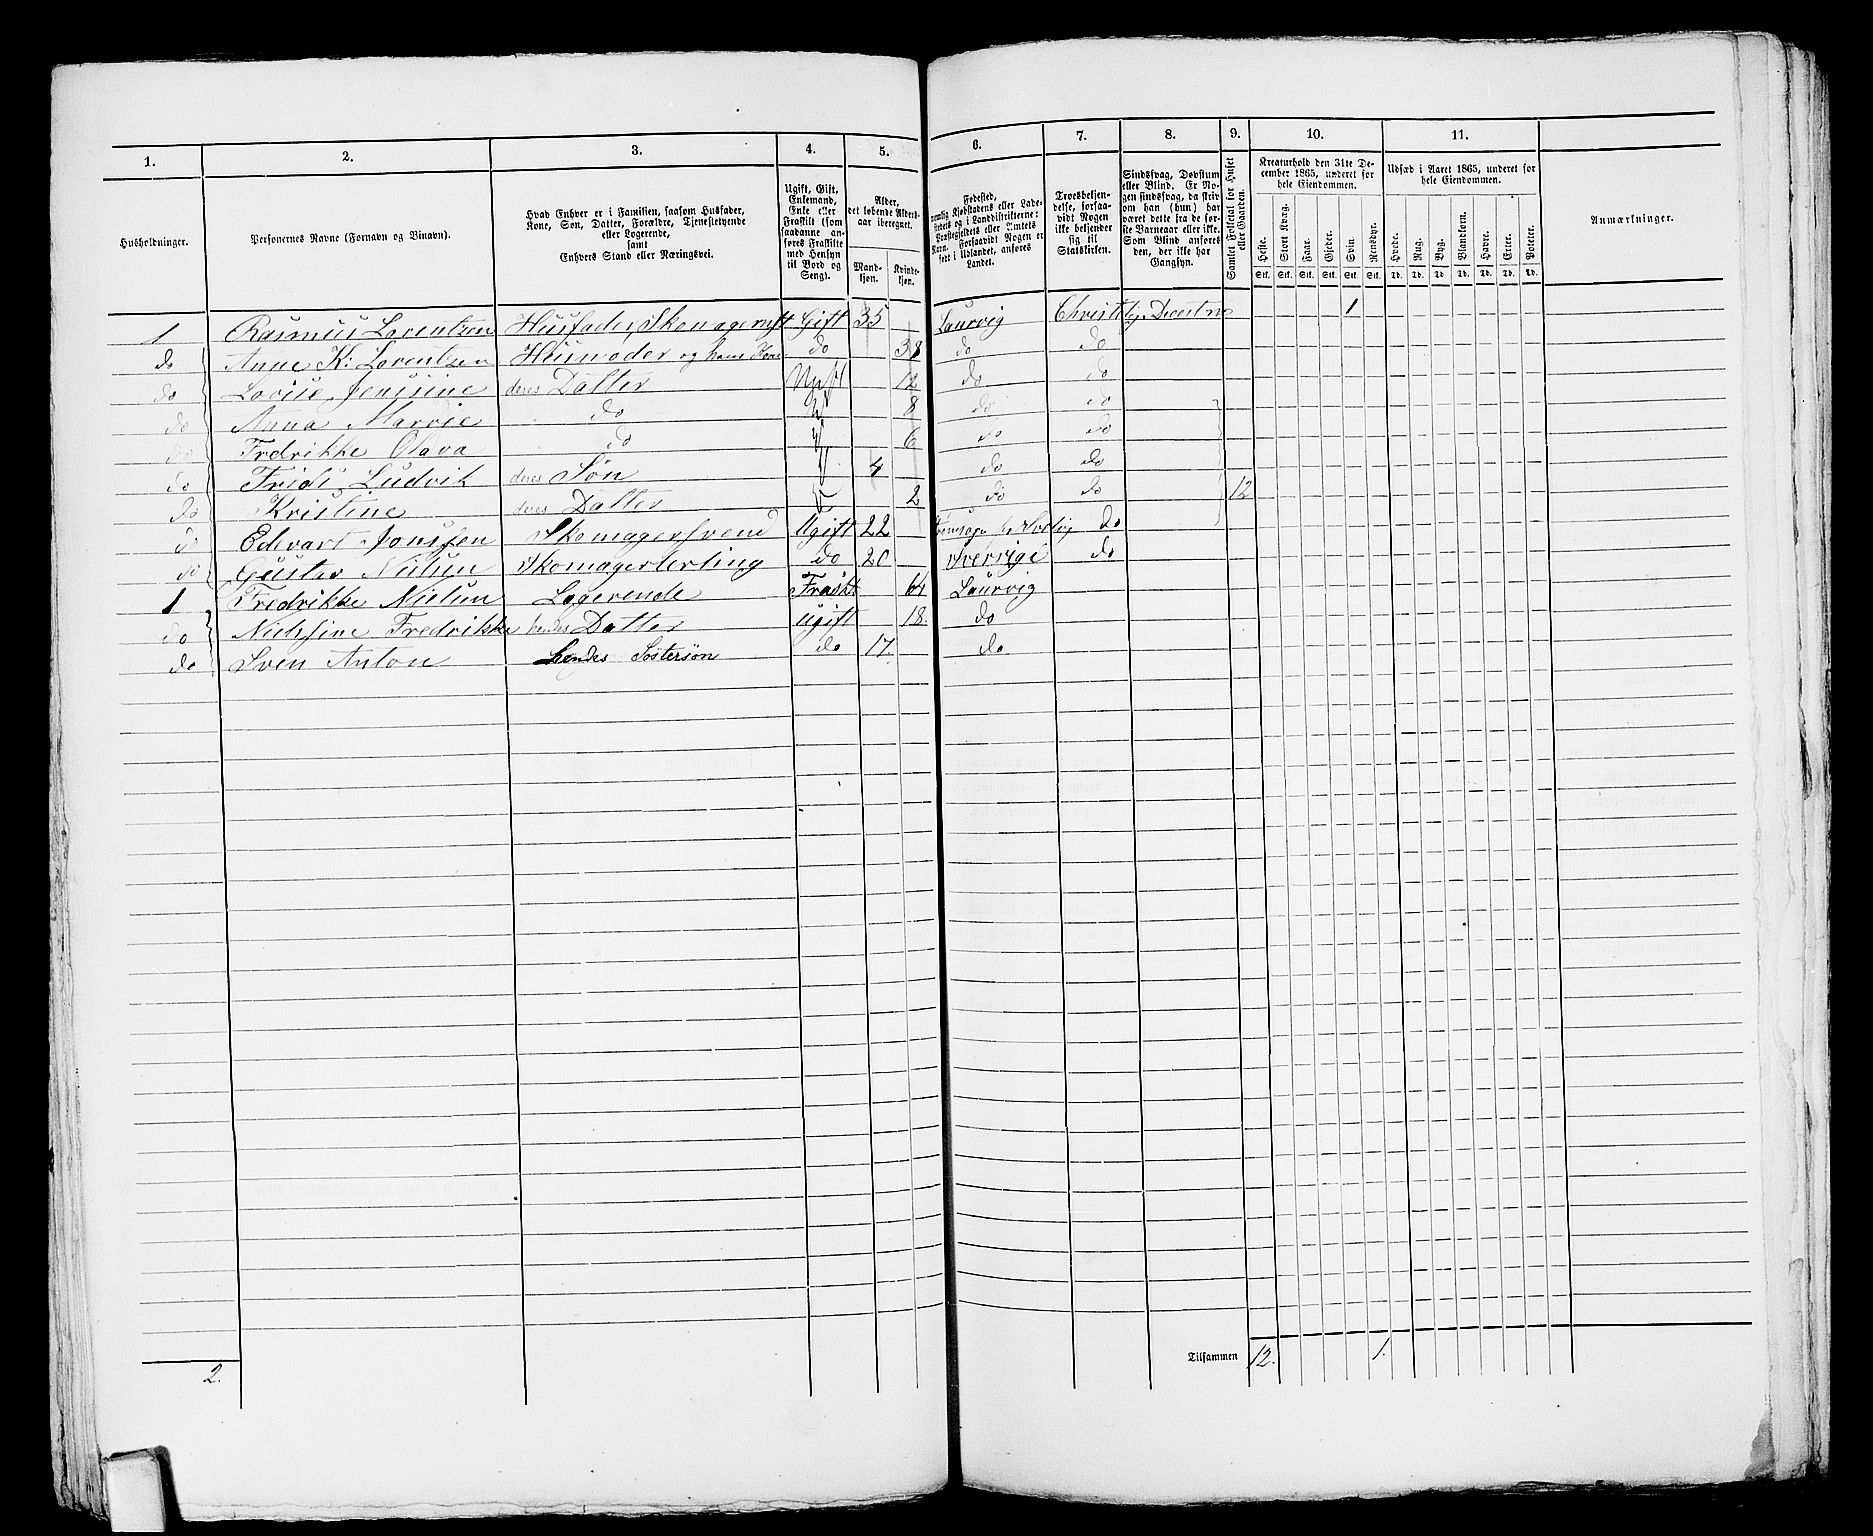 1. 2. 3. 4. 5. 6. 7. 8. 9. 10. 11.
Husholdninger.
Personernes Navne (Fornavn og Binavn).
Hvad Enhver er i Familien, saasom Husfader,
Kone, Søn, Datter, Forældre, Tjenestetyende
eller Logerende,
samt
Enhvers Stand eller Næringsvei.
Ugift, Gift,
Enkemand,
Enke eller
Fraskilt (som
saadanne an-
føres Fraskilte
med Hensyn
til Bord og
Seng).
Alder,
det løbende Alders-
aar iberegnet.
Mand-
kjøn.
Kvinde-
kjøn.
Fødested,
nemlig Kjøbstadens eller Lade-
stedets og i Landdistrikterne:
Præstegjeldets eller Amtets
Navn. Forsaavidt Nogen er
født i Udlandet, anføres
Landet.
Troesbekjen-
delse, forsaa-
vidt Nogen
ikke bekjender
sig til
Statskirken.
Sindssvag, Døvstum
eller Blind. Er No-
gen sindssvag, da skriv
om han (hun) har
været dette fra de før-
ste Barneaar eller ikke.
Som Blind anføres
den, der ikke har
Gangsyn.
Samlet Folketal for Huset
eller Gaarden.
Kreaturhold den 31te De-
cember 1865, underet for
hele Eiendommen.
Heste. Stort Kvæg. Faar. Gjeder. Svin. Rensdyr.
Stk. Stk. Stk. Stk. Stk. Stk.
Udsæd i Aaret 1865, underet for
hele Eiendommen.
Hvede. Rug. Byg. Blandkorn. Havre. Erter. Poteter.
Td. Td. Td. Td. Td. Td. Td.
Anmærkninger.
1 Rasmus Lorentzen Husfader, Skomagermst Gift 35 Laurvig Christelig Dicentn 1
do Anne K: Lorentzen Husmoder og hans Kone do 38 do do
do Lovise Jensine deres Datter Ugift 12 do do
do Anna Marvie do 8 do do
do Fredrikke Olava do 6 do do
do Fridi Ludvik deres Søn 4 do do
do Kristine deres Datter 2 do do 12
do Edevart Jonssen Skomagersvend Ugift 22 do
do Gustav Nielsen Skomagerlerling do 20 Sverrige do
1 Fredrikke Nielsen Logerende Fraskt 64 Laurvig
do Nielsine Fredrikke hendes Datter ugift 18. do
do Sven Anton hendes Søstersøn do 17. do
2.
Tilsammen 12. 1.